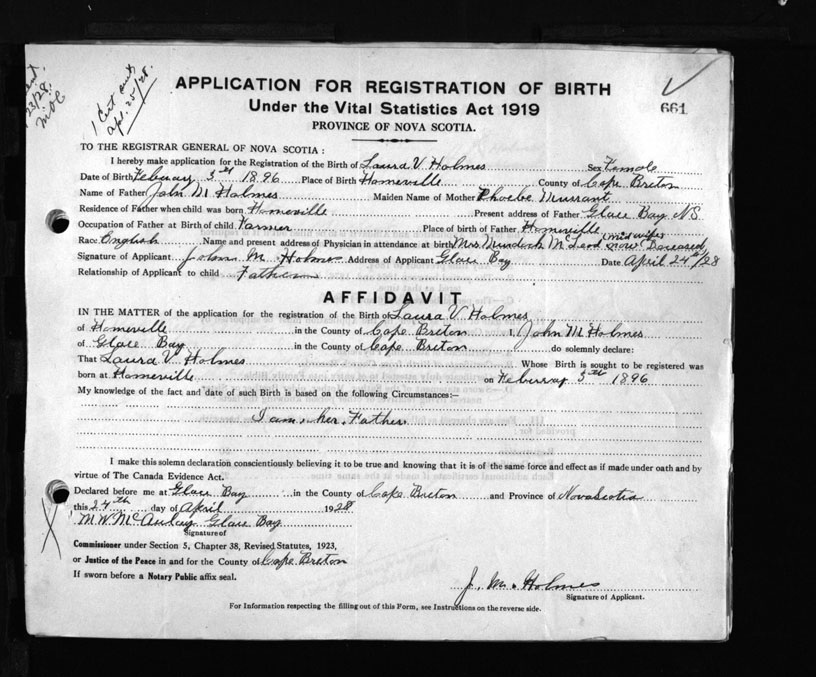 23/28
1 Cert out
Apl. 25/28.
APPLICATION FOR REGISTRATION OF BIRTH
661
Under the Vital Statistics Act 1919
PROVINCE OF NOVA SCOTIA.
TO THE REGISTRAR GENERAL OF NOVA SCOTIA :
I hereby make application for the Registration of the Birth of Laura V. Holmes Sex Female
Date of Birth February 1896 Place of Birth Homeville County of Cape Breton
Name of Father John M Holmes Maiden Name of Mother Phoebe Murrant
Residence of Father when child was born Homeville Present address of Father Glace Bay NS
Occupation of Father at Birth of child Farmer Place of birth of Father Homeville
Race English Name and present address of Physician in attendance at birth Mrs Murdoch McLeod (midwife) now Deceased
Signature of Applicant John M. Holmes Address of Applicant Glace Bay Date April 24th/28
Relationship of Applicant to child Father
AFFIDAVIT
IN THE MATTER of the application for the registration of the Birth of Laura V. Holmes
of Homeville in the County of Cape Breton I, John M Holmes
of Glace Bay in the County of Cape Breton do solemnly declare:
That Laura V Holmes Whose Birth is sought to be registered was
born at Homerville on Feburray 1896
My knowledge of the fact and date of such Birth is based on the following Circumstances:—
I am her Father
I make this solemn declaration conscientiously believing it to be true and knowing that it is of the same force and effect as if made under oath and by
virtue of The Canada Evidence Act.
Declared before me at Glace Bay in the County of Cape Breton and Province of Nova Scotia
this 24th day of April 1928
M.W. McAulay Glace Bay
Signature of
Commissioner under Section 5, Chapter 38, Revised Statutes, 1923,
or Justice of the Peace in and for the County of Cape Breton
If sworn before a Notary Public affix seal.
J. M. Holmes
Signature of Applicant.
For Information respecting the filling out of this Form, see Instructions on the reverse side.